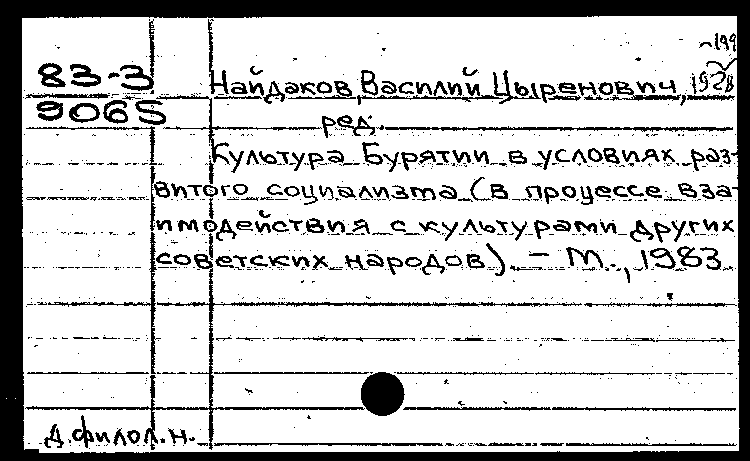 ~199
83-3 Найдаков, Василий Цыренович, 1928
9065 ред.
Культура Бурятии в условиях раз-
витого социализма (в процессе вза-
имодействия с культурами других
советских народов). – М., 1983
д.филол.н.